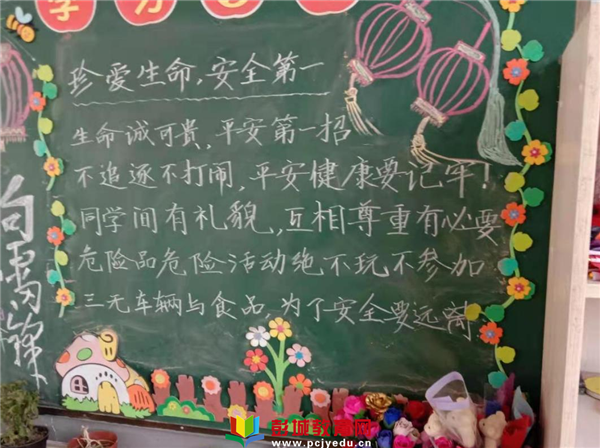 珍爱生命,安全第一
生命诚可贵,平安第一招
不追逐不打闹,平安健康要记牢!
同学间有礼貌,互相尊重有必要
危险品危险活动绝不玩不参加
三无车辆与食品 为了安全要远离
向雷锋
彭城教育网
www.pcjyedu.cn